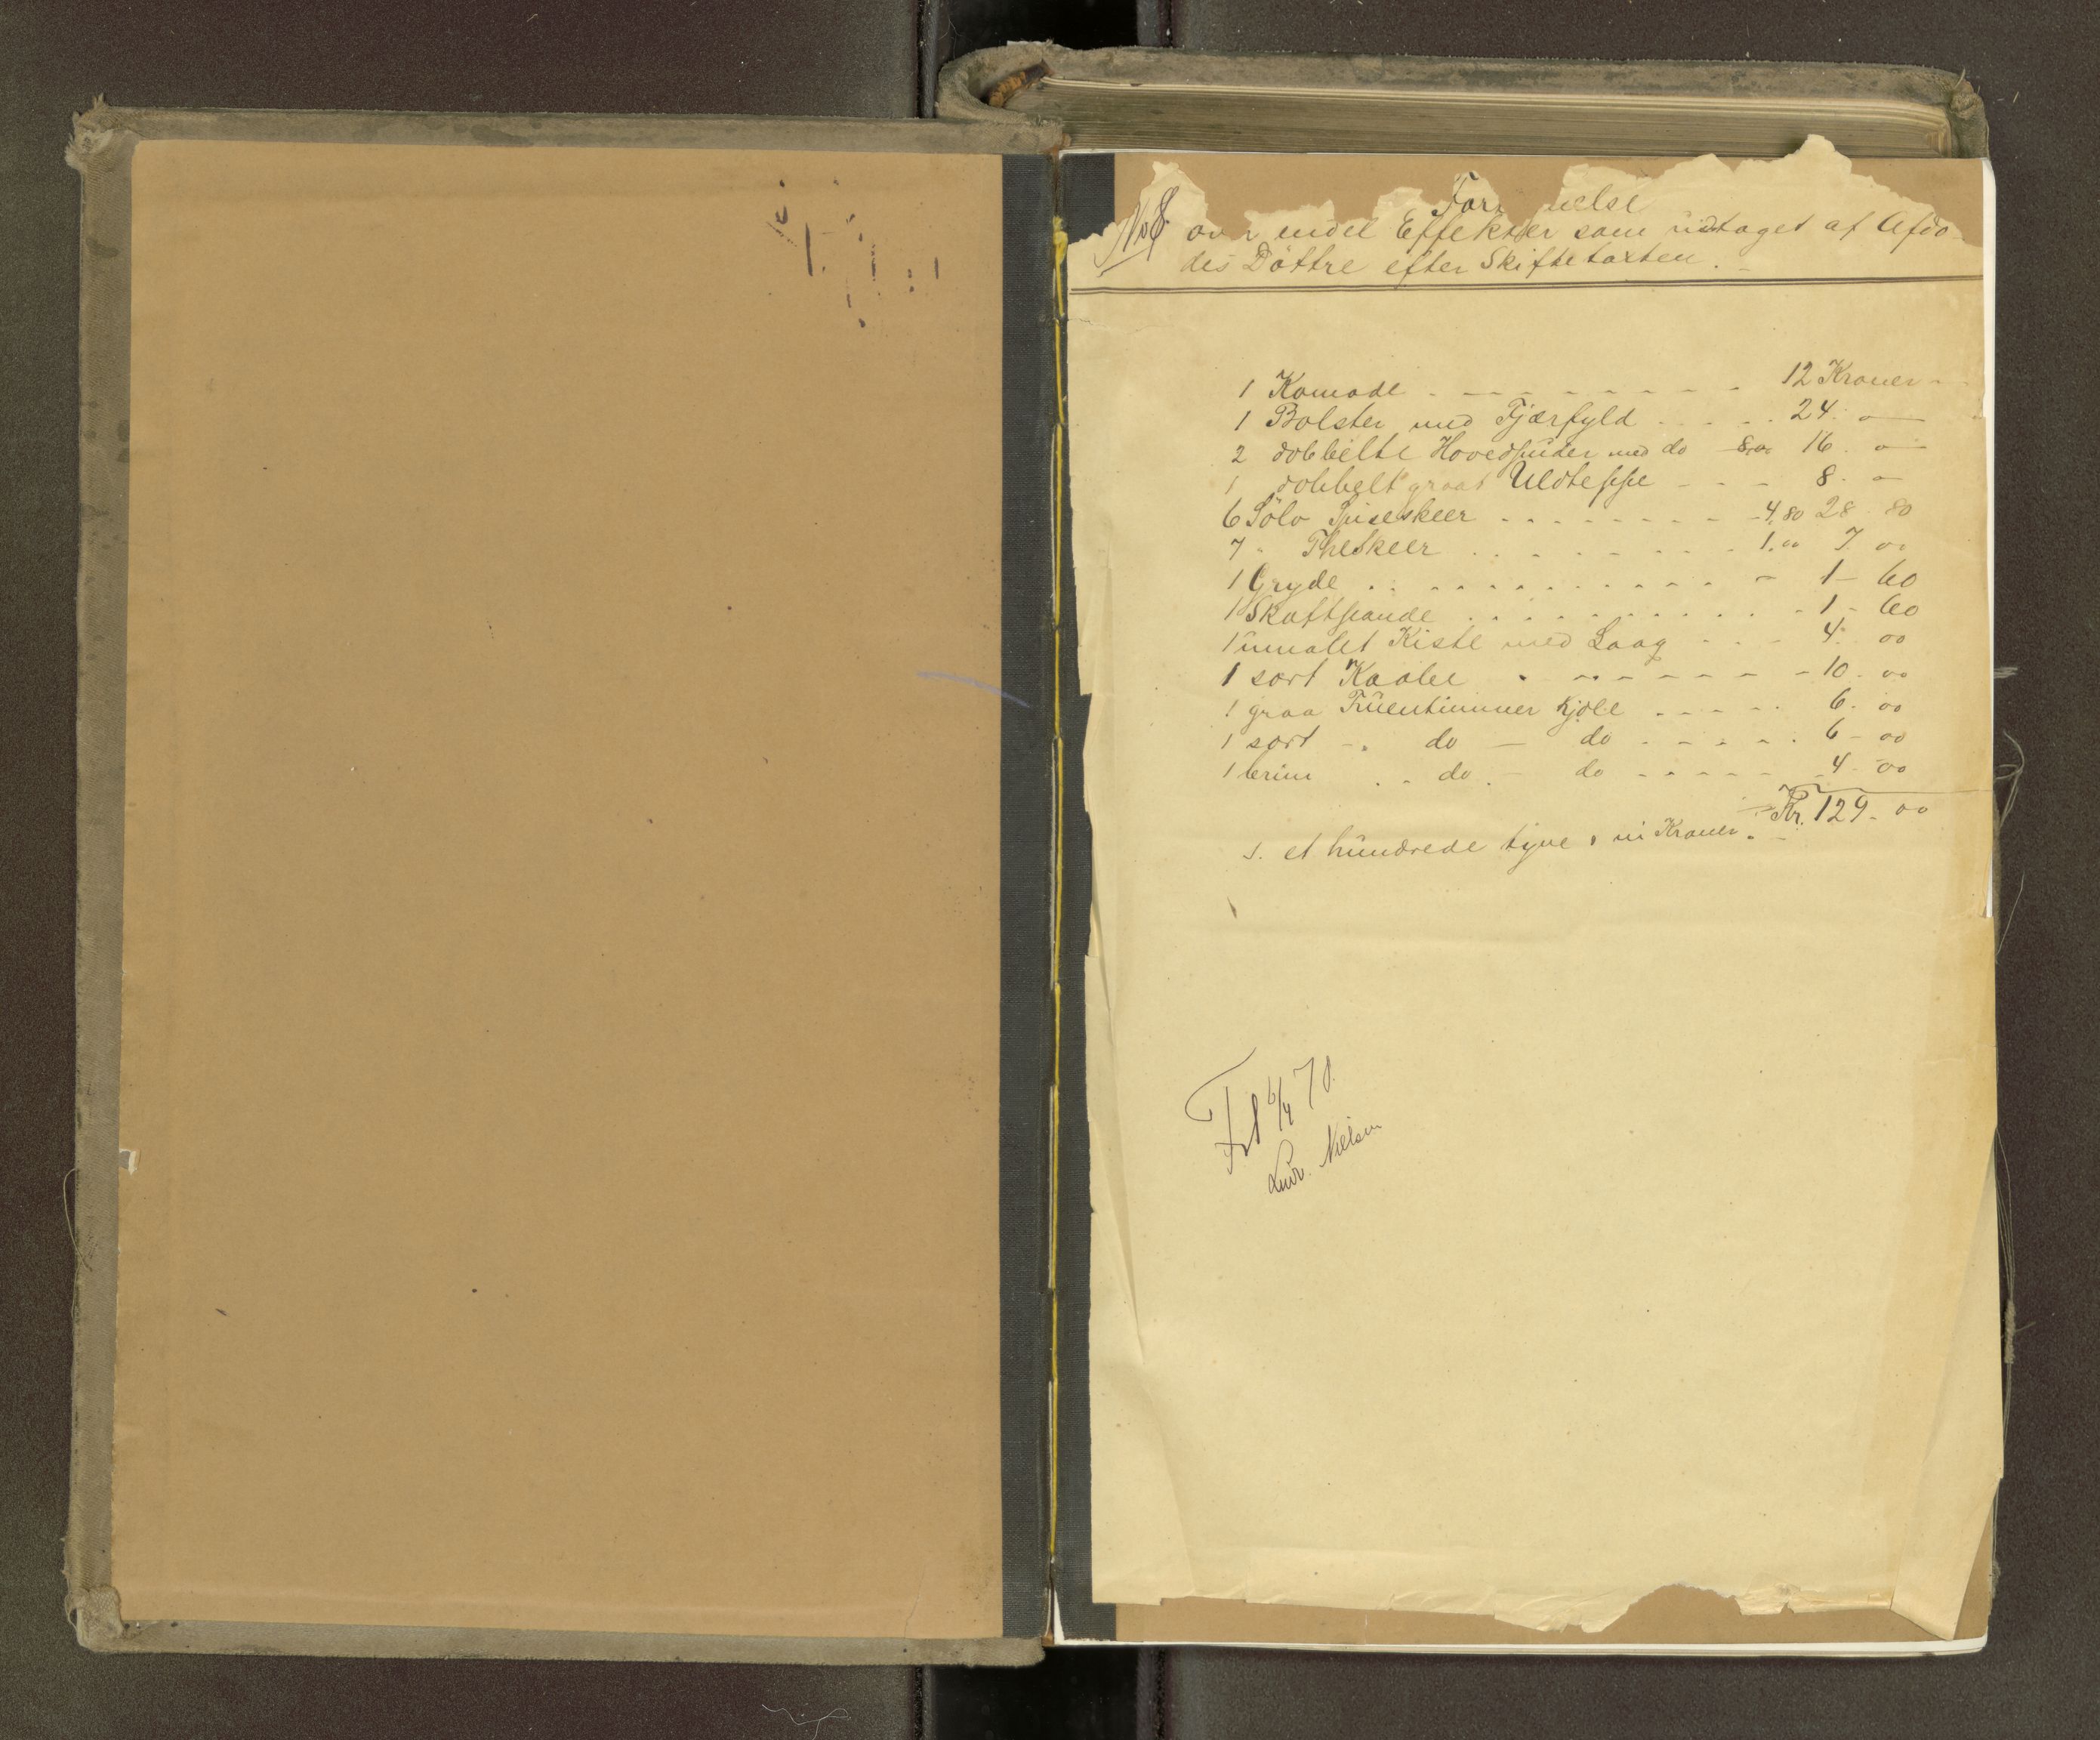 No 8.
over endel Effekter som udtaget af Afdø-
des Döttre efter Skiftetaxten.
1 Komode - - - - - 12 Kroner -
1 Bolster med Fjærfyld - - - - 24. o
2 dobbelte Hovedpuder med do 8,00 16. o
1 dobbelt graat Uldteppe - - - 8. o
6 Sölv Spiseskeer - - - - 4,80 28. 80
7 " Theskeer - - - - 1.00 7. 00
1 Gryde - - - - 1 - 60
1 Skaftpande - - - - 1 - 60
1 umalet Kiste med Laag - - - 4. 00
1 sort Kaabe - - - - 10. 00
1 graa Fruentimmer Kjole - - - - 6. 00
1 sort - do - do - - - - 6 - 00
1 brun - do - do - - - - 4 - 00
Kr. 129 - 00
s. et hundrede tyve & ni Kroner. -
6/4 78.
Ludv. Nielsen